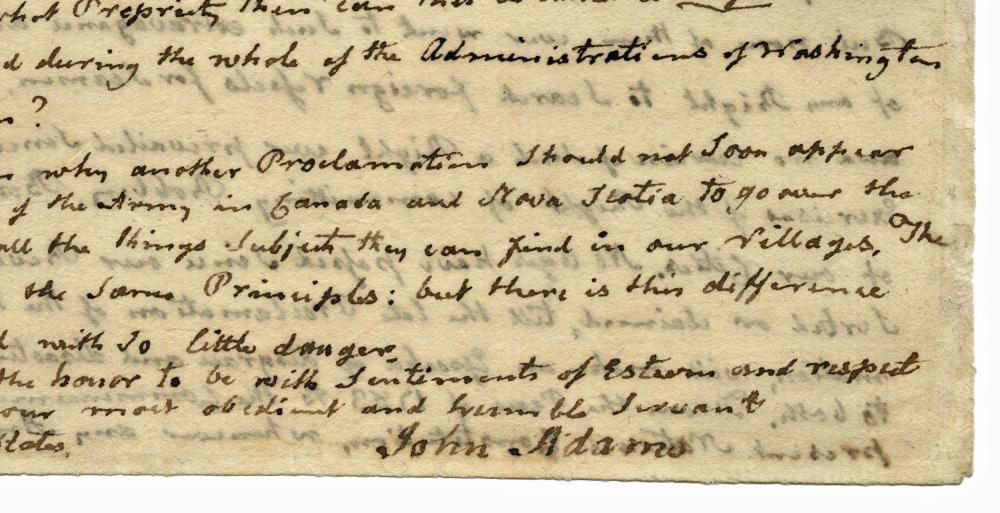 what Propriety then can this
d during the whole of the Administrations of Washington
n?
why another Proclamation Should not Soon appear
of the Army in Canada and Nova Scotia to go over the
all the Kings Subjects they can find in our Villages. The
the Same Principles: but there is this difference
d with So little danger.
the honor to be with Sentiments of Esteem and respect
our most obedient and humble Servant
States.
John Adams